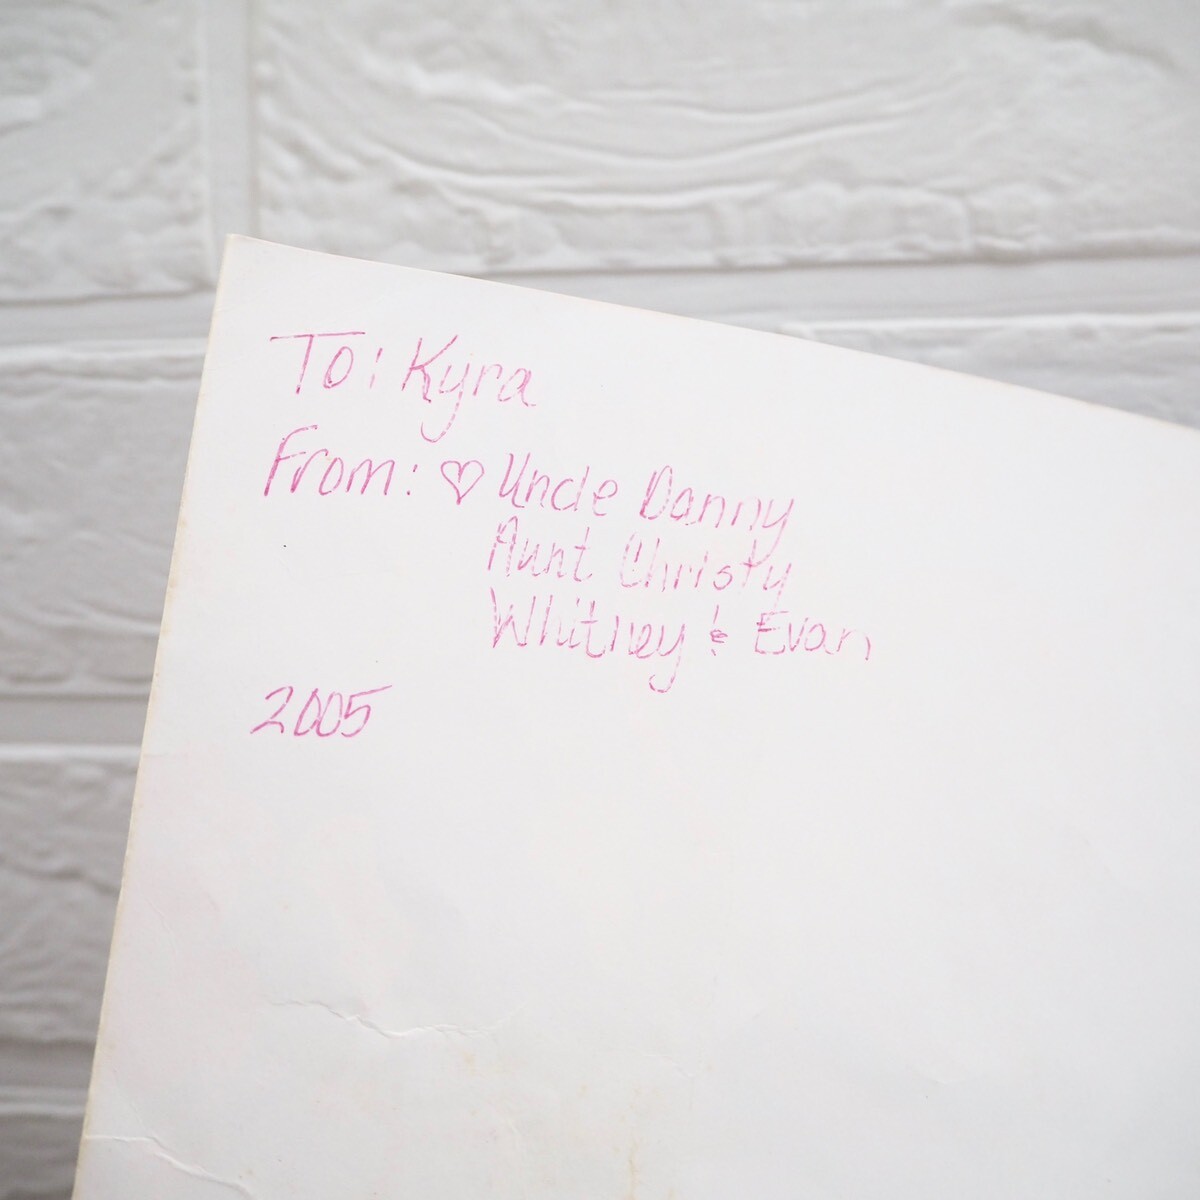 To: Kyra
From: ♡ Uncle Danny
Aunt Christy
Whitney & Evan
2005